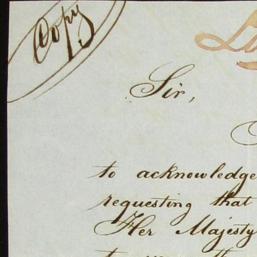 Copy
Sir,
to acknowledge
requesting that
Her Majesty